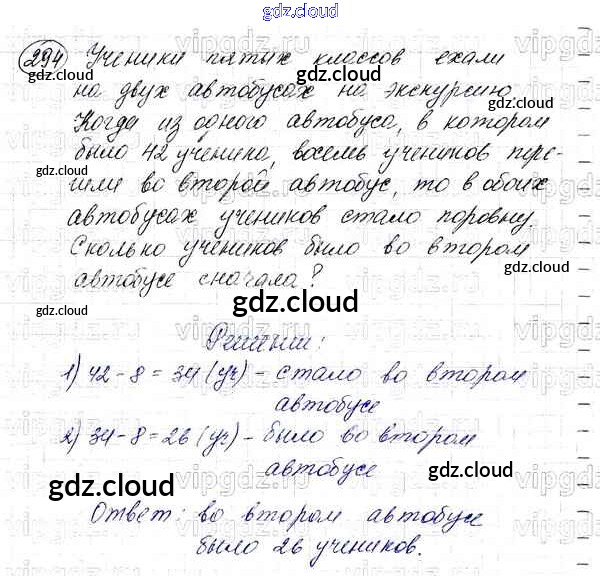 gdz.cloud
294 Ученики пятых классов ехали
gdz.cloud gdz.cloud
на двух автобусах на экскурсию.
Когда из одного автобуса, в котором
gdz.cloud gdz.cloud
было 42 ученика, восемь учеников пере-
шли во второй автобус, то в обоих
автобусах учеников стало поровну.
Сколько учеников было во втором
gdz.cloud
автобусе сначала?
gdz.cloud gdz.cloud
Решение:
1) 42 - 8 = 34 (уч) - стало во втором
автобусе
2) 34 - 8 = 26 (уч) - было во втором
автобусе
gdz.cloud gdz.cloud
Ответ: во втором автобусе
было 26 учеников.
gdz.cloud